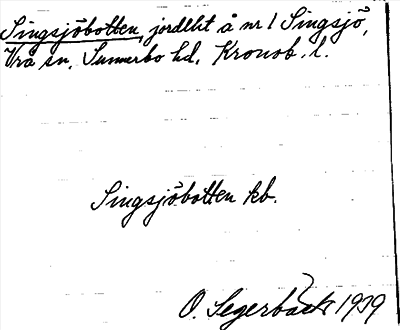 Singsjöbotten, jordlht å nr 1 Singsjö,
Vrå sn, Sunnerbo hd, Kronob. l.
Singsjöbotten kb.
O. Segerback 1939